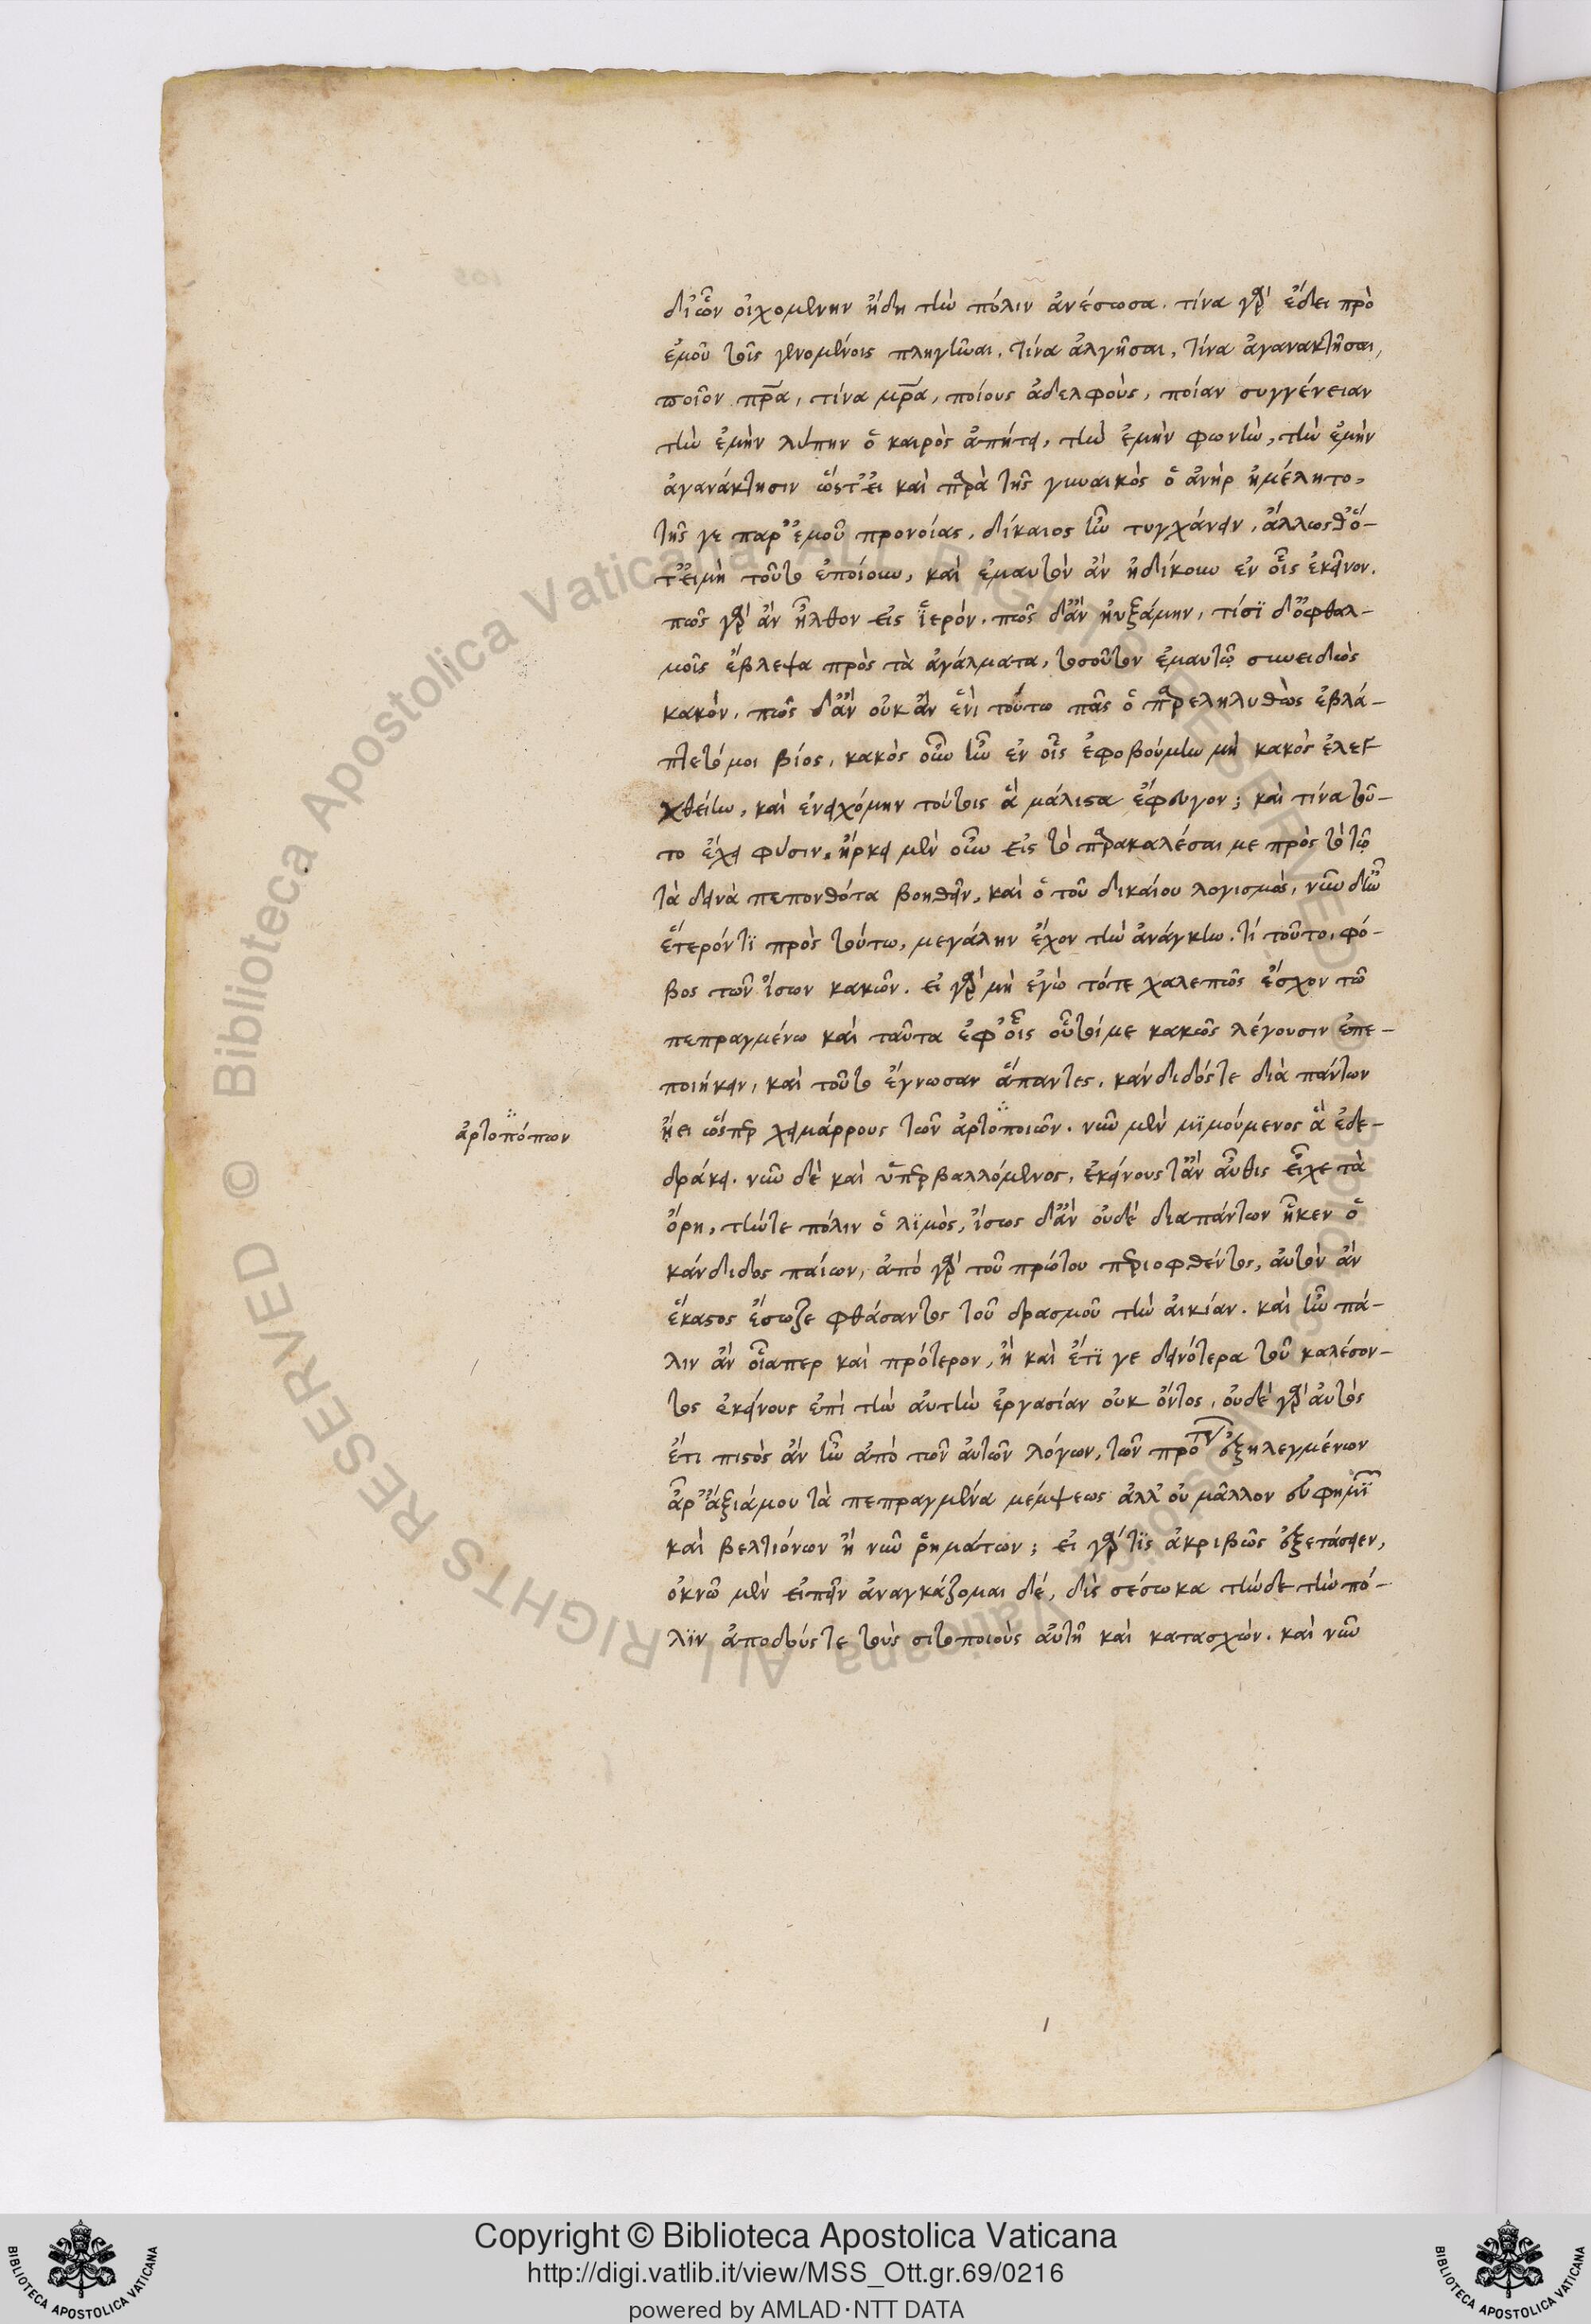 δι' ὧν οἰχομένην ἤδη τὴν πόλιν ἀνέσωσα. τίνα γὰρ ἔδει πρὸ
ἐμοῦ τοῖς γενομένοις πληγῆναι, τίνα ἀλγῆσαι, τίνα ἀγανακτῆσαι,
ποῖον πρα, τίνα μρα, ποίους ἀδελφοὺς, ποίαν συγγένειαν
τὴν ἐμὴν λύπην ὁ καιρὸς ἀπήτει, τὴν ἐμὴν φωνὴν, τὴν ἐμὴν
ἀγανάκτησιν ὥστ' εἰ καὶ παρὰ τῆς γυναικὸς ὁ ἀνὴρ ἠμέλητο,
τῆς γε παρ' ἐμοῦ προνοίας, δίκαιος ἦν τυγχάνειν, ἄλλως θ' ὅ-
τ' εἰ μὴ τοῦτο ἐποίουν, καὶ ἐμαυτὸν ἂν ἠδίκουν ἐν οἷς ἐκεῖνον.
πῶς γὰρ ἂν ἦλθον εἰς ἱερόν. πῶς δ' ἂν ηὐξάμην, τίσϊ δ' ὀφθαλ-
μοῖς ἔβλεψα πρὸς τὰ ἀγάλματα, τοσοῦτον ἐμαυτῷ συνειδὼς
κακόν. πῶς δ' ἂν οὐκ ἂν ἑνὶ τούτω πᾶς ὁ παρεληλυθὼς ἐβλά-
πτετό μοι βίος, κακὸς οὖν ἦν ἐν οἷς ἐφοβούμην μὴ κακὸς ἐλεγ
χθείην, καὶ ἐνειχόμην τούτοις ἃ μάλιστα ἔφευγον; καὶ τίνα τοῦ-
το ἔχει φύσιν. ἤρκει μὲν οὖν εἰς τὸ παρακαλέσαι με πρὸς τὸ τῷ
τὰ δεινὰ πεπονθότα βοηθεῖν, καὶ ὁ τοῦ δικαίου λογισμὸς, νῦν δ' ἦν
ἕτερόν τϊ πρὸς τούτω, μεγάλην ἔχον τὴν ἀνάγκην. τί τοῦτο, φό-
βος τῶν ἴσων κακῶν. εἰ γὰρ μὴ ἐγὼ τότε χαλεπῶς ἔσχον τῶ
πεπραγμένω καὶ ταῦτα ἐφ' οἷς οὗτοί με κακῶς λέγουσιν ἐπε-
ποιήκειν, καὶ τοῦτο ἔγνωσαν ἅπαντες, κάνδιδός τε διὰ πάντων
ᾔει ὥσπερ χειμάρρους τῶν ἀρτοποιῶν. νῦν μὲν μϊμούμενος ἃ ἐδε-
δράκει. νῦν δὲ καὶ ὑπερβαλλόμενος, ἐκείνους τ' ἂν αὖθις εἶχε τὰ
ὄρη, τήν τε πόλιν ὁ λϊμὸς, ἴσως δ' ἂν οὐδὲ διαπάντων ἧκεν ὁ
κάνδιδος παίων, ἀπὸ γὰρ τοῦ πρώτου περιοφθέντος, αὐτὸν ἂν
ἕκαστος ἔσωζε φθάσαντος τοῦ δρασμοῦ τὴν αἰκίαν. καὶ ἦν πά-
λιν ἂν οἷαπερ καὶ πρότερον, ἢ καὶ ἔτϊ γε δεινότερα τοῦ καλέσον-
τος ἐκείνους ἐπὶ τὴν αὐτὴν ἐργασίαν οὐκ ὄντος, οὐδὲ γὰρ αὐτὸς
ἔτι πιστὸς ἂν ἦν ἀπὸ τῶν αὐτῶν λόγων, τῶν πρότερον ἐξηλεγμένων
ἆρ' ἄξιά μου τὰ πεπραγμένα μέμψεως ἀλλ' οὐ μᾶλλον εὐφημιῶν
καὶ βελτιόνων ἢ νῦν ῥημάτων; εἰ γάρ τϊς ἀκριβῶς ἐξετάσειεν,
ὀκνῶ μὲν εἰπεῖν ἀναγκάζομαι δέ, δὶς σέσωκα τήνδε τὴν πό-
λϊν ἀποδούς τε τοὺς σιτοποιοὺς αὐτῇ καὶ κατασχών. καὶ νῦν
ἀρτοπόπων
Biblioteca Apostolica Vaticana ALL RIGHTS RESERVED ©
Copyright © Biblioteca Apostolica Vaticana
http://digi.vatlib.it/view/MSS_Ott.gr.69/0216
powered by AMLAD·NTT DATA
BIBLIOTECA APOSTOLICA VATICANA
BIBLIOTECA APOSTOLICA VATICANA